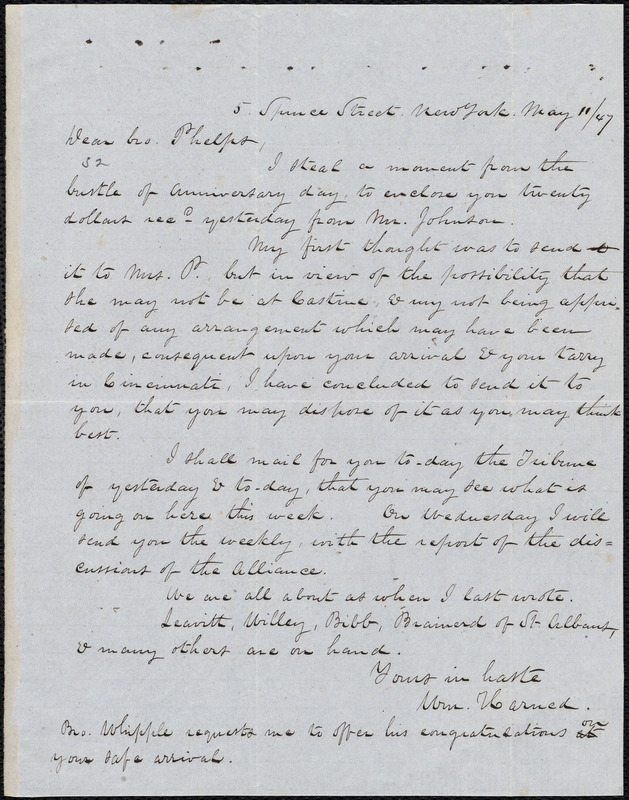 5 Spruce Street. New York. May 11/47
Dear bro. Phelps,
52
I steal a moment from the
bustle of Anniversary day, to enclose you twenty
dollars recd yesterday from Mr. Johnson.
My first thought was to send
it to Mrs. P. but in view of the possibility that
she may not be at Castine, & my not being appri-
sed of any arrangement which may have been
made, consequent upon your arrival & your tarry
in Cincinnati, I have concluded to send it to
you, that you may dispose of it as you may think
best.
I shall mail for you to-day the Tribune
of yesterday & to-day, that you may see what is
going on here this week. On Wednesday I will
send you the weekly, with the report of the dis=
cussions of the Alliance.
We are all about as when I last wrote.
Leavitt, Willey, Bibb, Brainerd of St Albans,
& many others are on hand.
Yours in haste
Wm. Harned.
Bro. Whipple requests me to offer his congratulations on
your safe arrival.